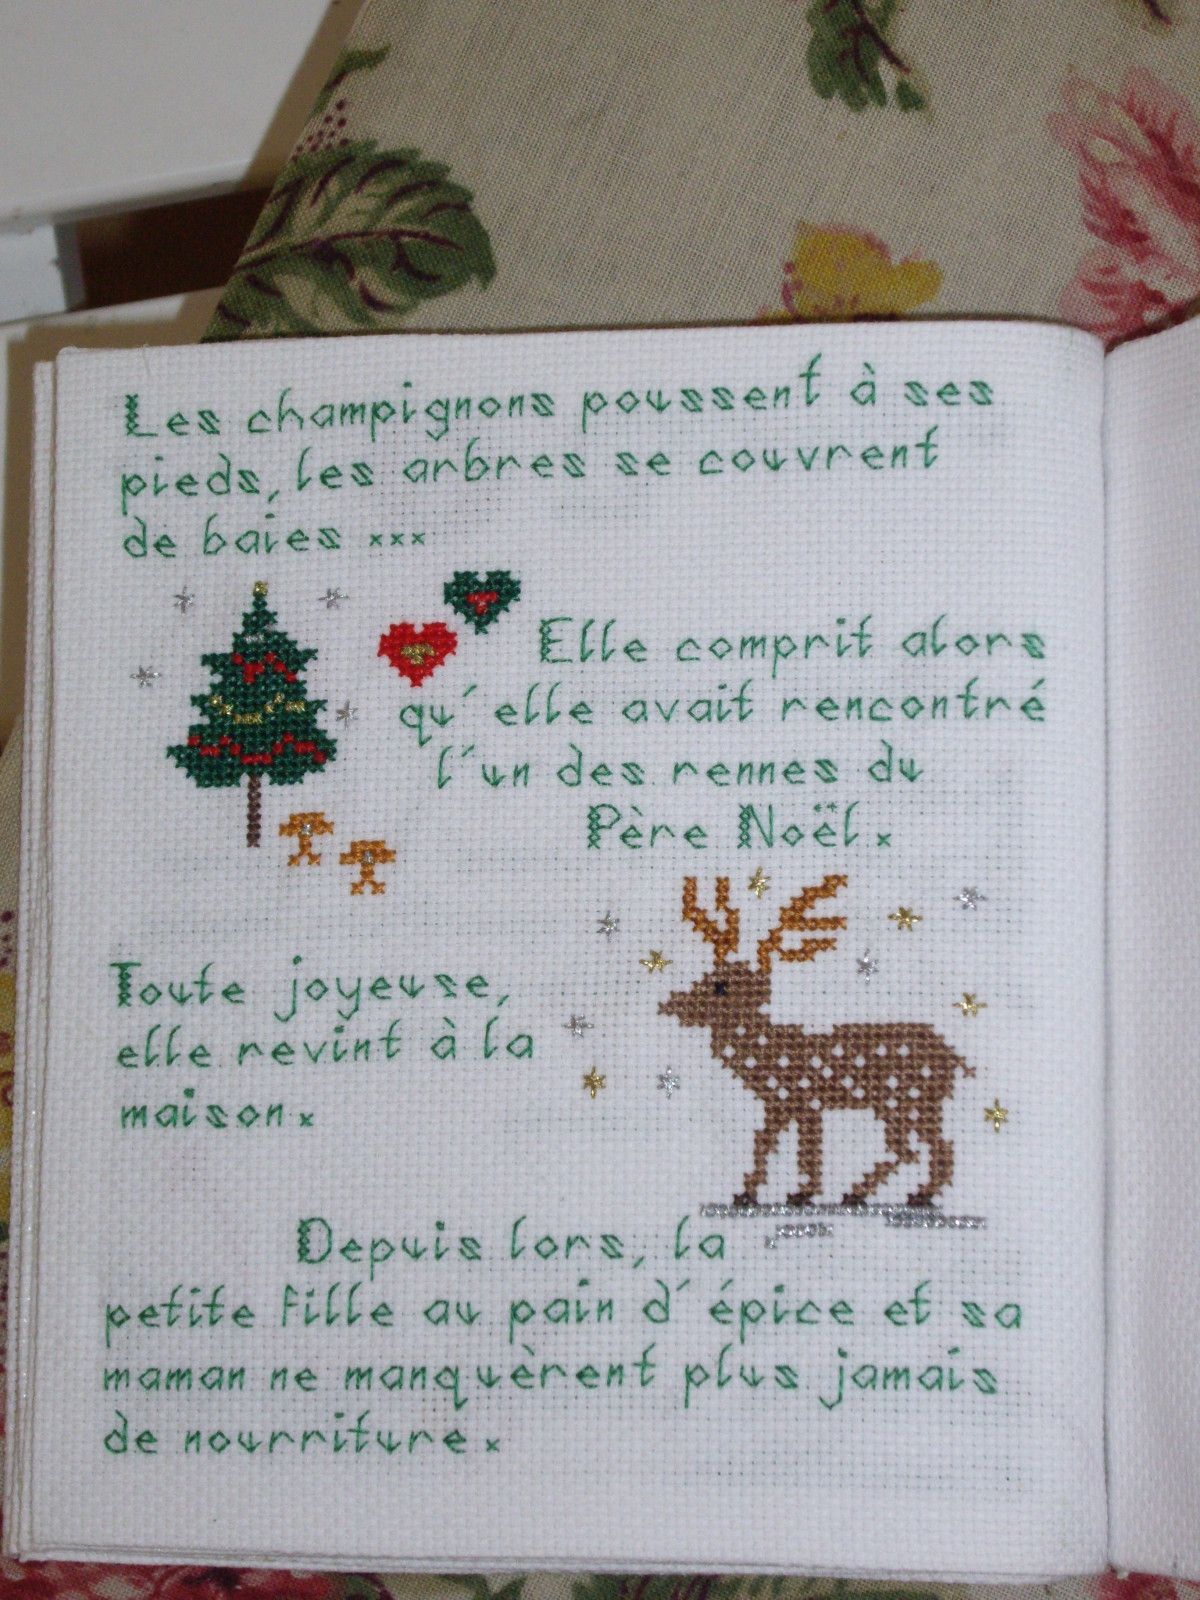 Les champignons poussent à ses
pieds, les arbres se couvrent
de baies ...
Elle comprit alors
qu'elle avait rencontré
l'un des rennes du
Père Noël.
Toute joyeuse,
elle revint à la
maison.
Depuis lors, la
petite fille au pain d'épice et sa
maman ne manquèrent plus jamais
de nourriture.